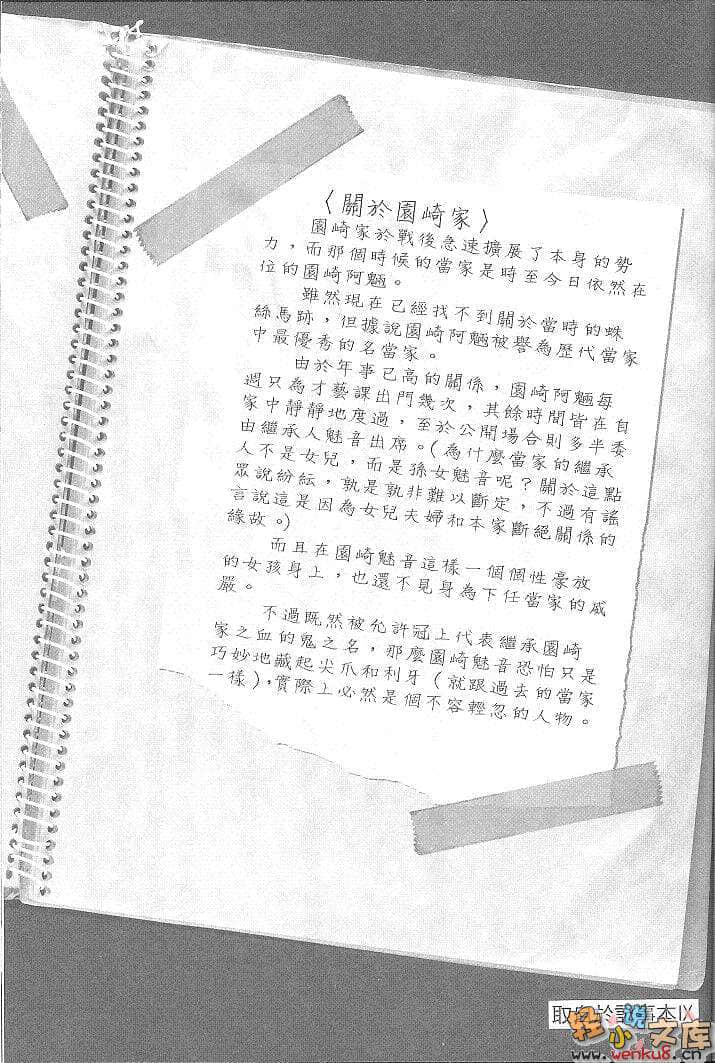 〈關於園崎家〉
園崎家於戰後急速擴展了本身的勢
力，而那個時候的當家是時至今日依然在
位的園崎阿魎。
雖然現在已經找不到關於當時的蛛
絲馬跡，但據說園崎阿魎被譽為歷代當家
中最優秀的名當家。
由於年事已高的關係，園崎阿魎每
週只為才藝課出門幾次，其餘時間皆在自
家中靜靜地度過，至於公開場合則多半委
由繼承人魅音出席。(為什麼當家的繼承
人不是女兒，而是孫女魅音呢？關於這點
眾說紛紜，孰是孰非難以斷定，不過有謠
言說這是因為女兒夫婦和本家斷絕關係的
緣故。)
而且在園崎魅音這樣一個個性豪放
的女孩身上，也還不見身為下任當家的威
嚴。
不過既然被允許冠上代表繼承園崎
家之血的鬼之名，那麼園崎魅音恐怕只是
巧妙地藏起尖爪和利牙（就跟過去的當家
一樣），實際上必然是個不容輕忽的人物。
取自於記事本IX
轻小说文库
www.wenku8.cn